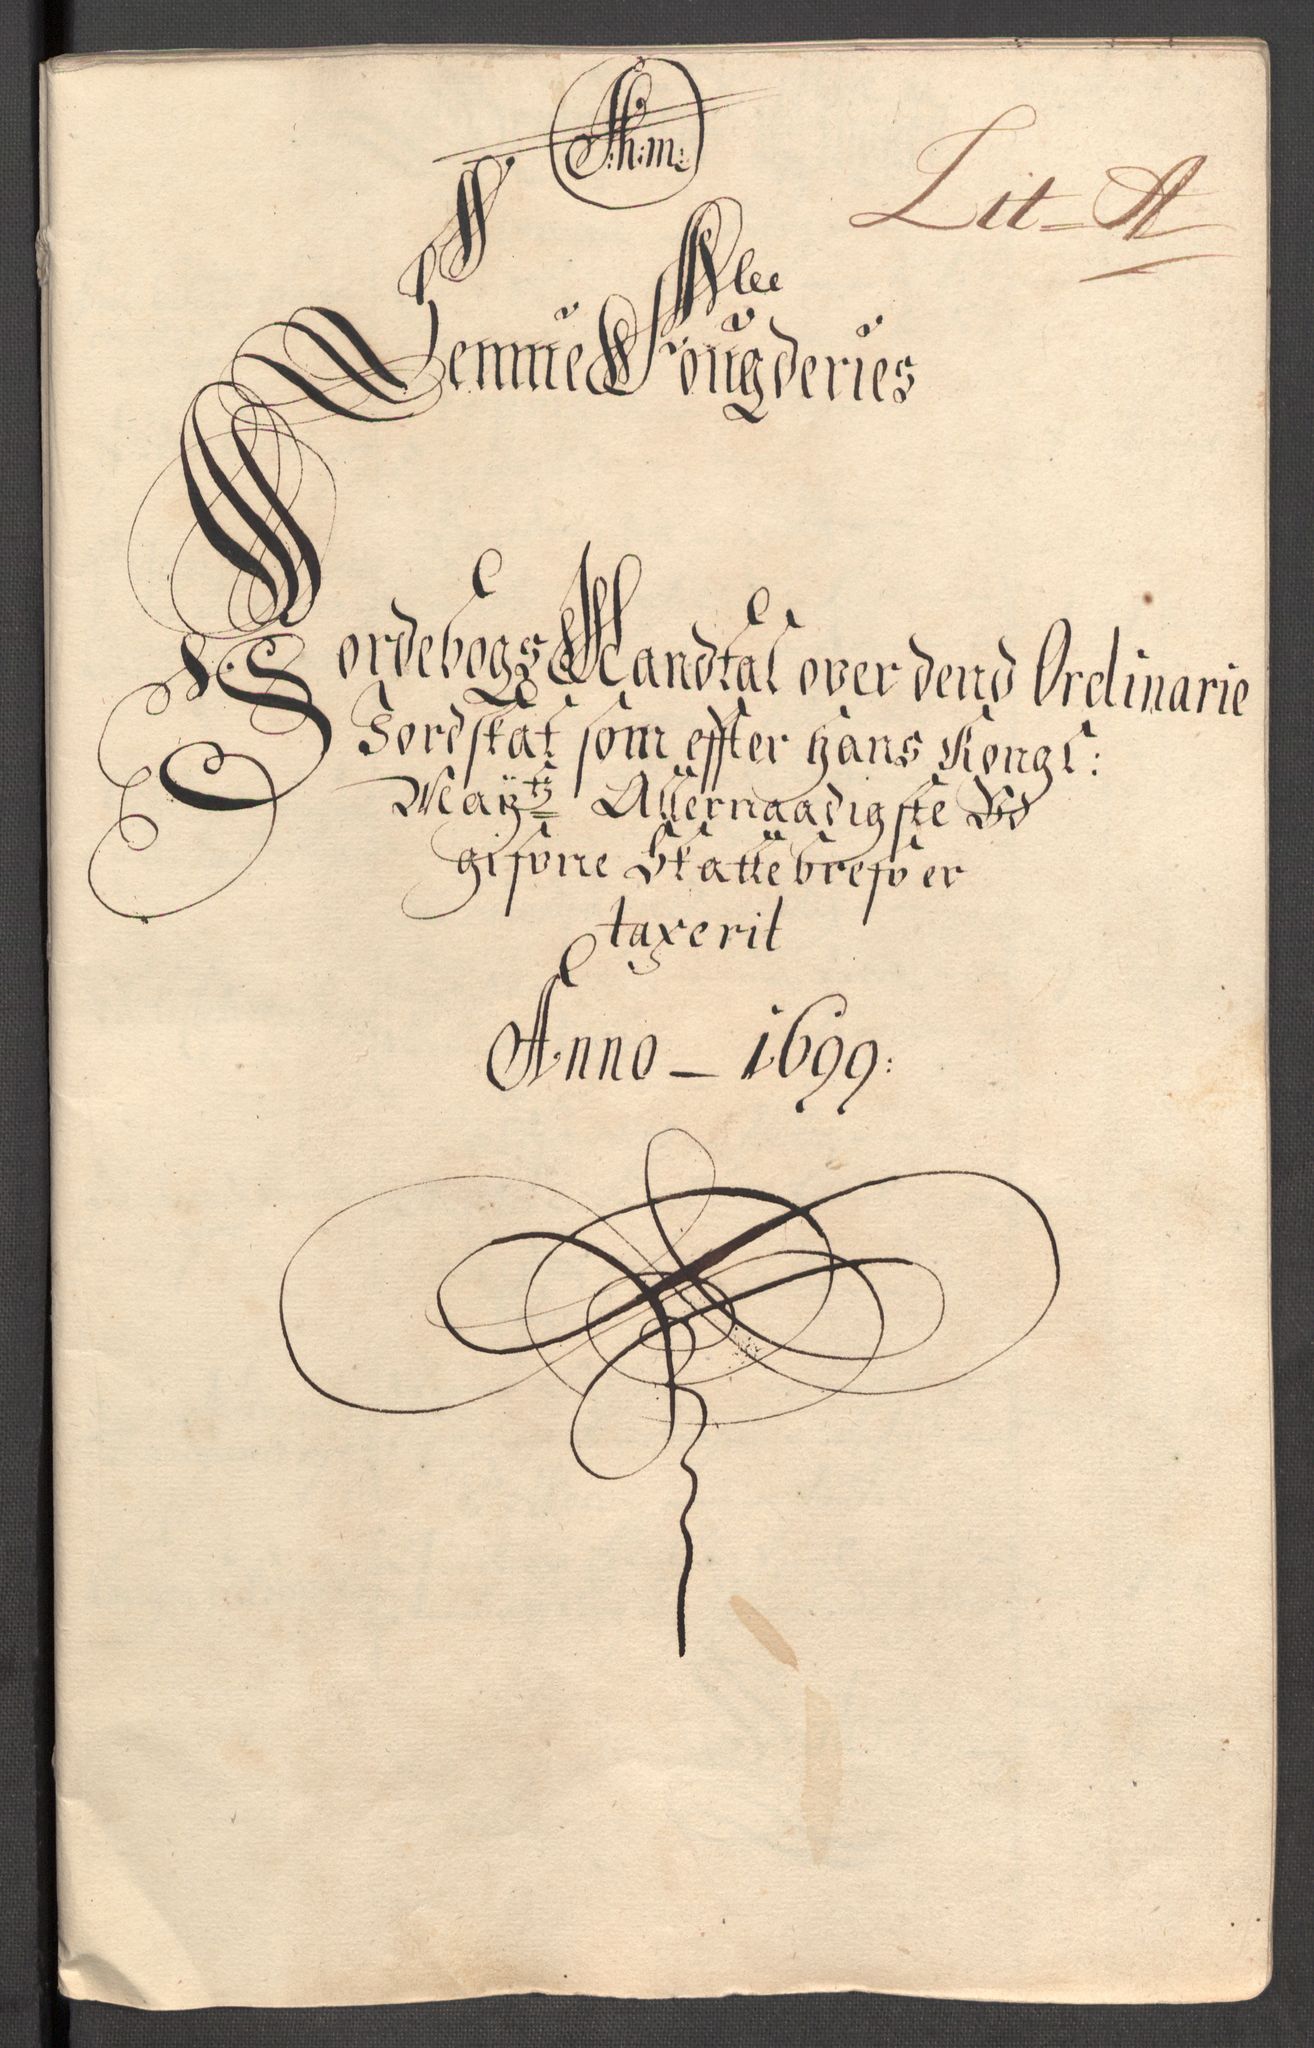 Lit=A
Fougderies
Jordebogs Mandtal over dend Ordinarie
Jordskat som effter hans Kongl:
Mayts Allernaadigste Ud
gifvne Skattebrefv er
taxerit
Anno – 1699: